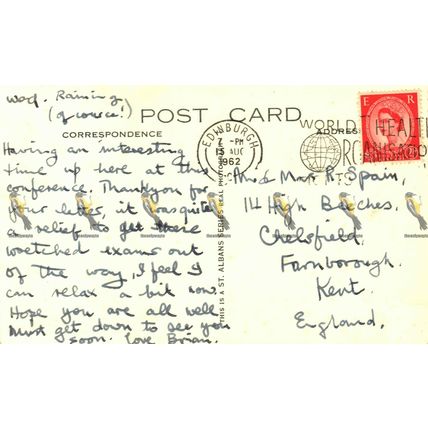 Wed. Raining
(of course!)
POST CARD
CORRESPONDENCE
ADDRESS
Having an interesting
time up here at this
conference. Thankyou for
your letter, it was quite
a relief to get these
wretched exams out
of the way, I feel I
can relax a bit now.
Hope you are all well.
Must get down to see you
soon. Love Brian.
THIS IS A ST. ALBANS SERIES REAL PHOTOGRAPH
EDINBURGH
-PM
15 AUG
1962
WORLD HEALTH
ORGANISATION
E R
Mr & Mrs R. Spain,
14 High Beeches,
Chelsfield,
Farnborough.
Kent.
England.